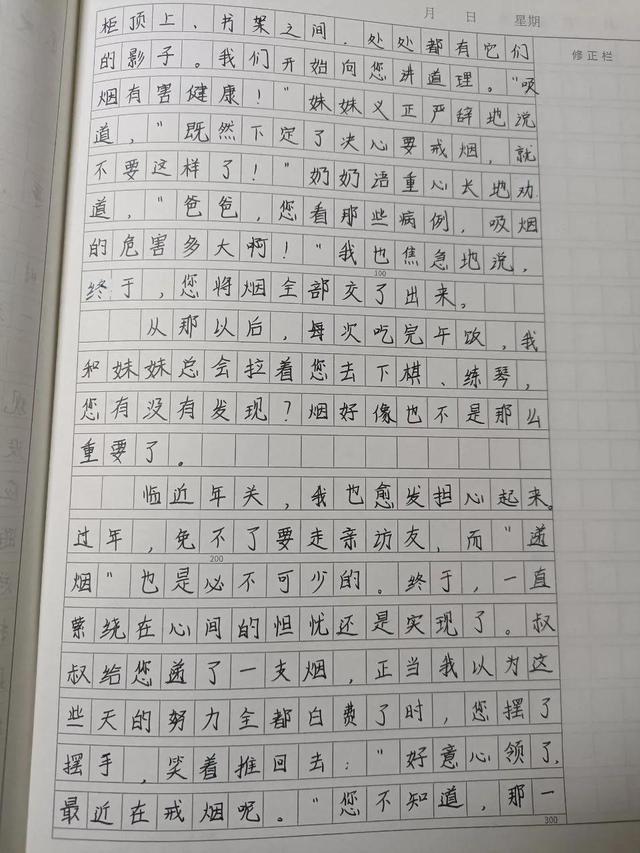 月 日 星期
修正栏
柜顶上、书架之间，处处都有它们
的影子。我们开始向您讲道理。"吸
烟有害健康！"妹妹义正严辞地说
道，"既然下定了决心要戒烟，就
不要这样了！"奶奶语重心长地劝
道，"爸爸，您看那些病例，吸烟
的危害多大啊！"我也焦急地说，
100
终于，您将烟全部交了出来。
从那以后，每次吃完午饭，我
和妹妹总会拉着您去下棋、练琴，
您有没有发现？烟好像也不是那么
重要了。
临近年关，我也愈发担心起来。
过年，免不了要走亲访友，而"递
200
烟"也是必不可少的。终于，一直
萦绕在心间的担忧还是实现了。叔
叔给您递了一支烟，正当我以为这
些天的努力全都白费了时，您摆了
摆手，笑着推回去："好意心领了，
最近在戒烟呢。"您不知道，那一
300